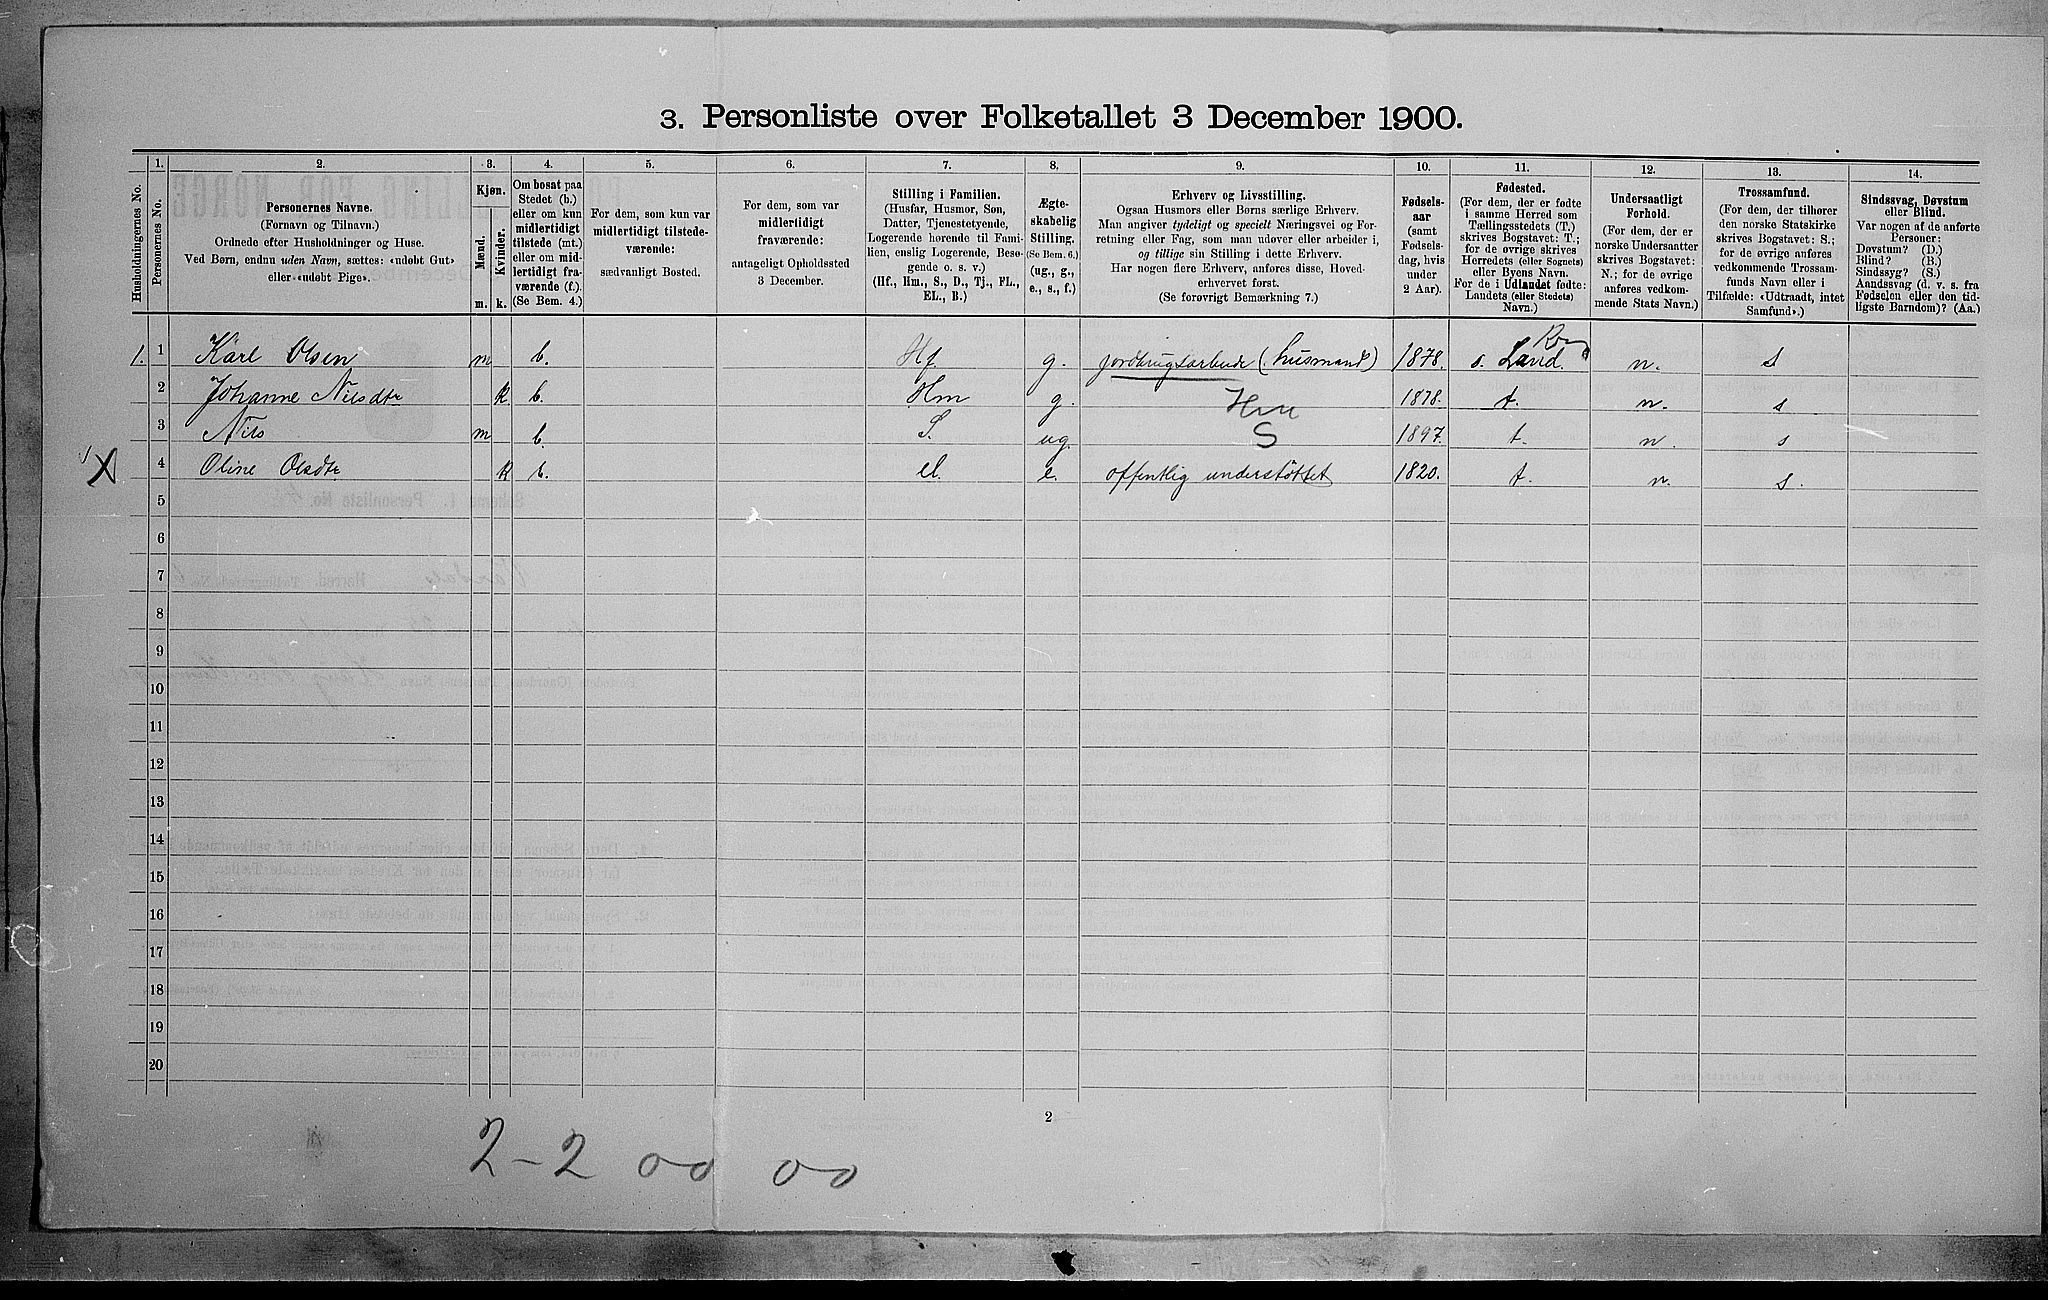 3. Personliste over Folketallet 3 December 1900.
Husholdningernes No.
1.
Personernes No.
2.
Personernes Navne.
(Fornavn og Tilnavn.)
Ordnede efter Husholdninger og Huse.
Ved Børn, endnu uden Navn, sættes: «udøbt Gut»
eller «udøbt Pige».
3.
Kjøn.
Mænd.
Kvinder.
m.
k.
4.
Om bosat paa
Stedet (b.)
eller om kun
midlertidigt
tilstede (mt.)
eller om mid-
lertidigt fra-
værende (f.).
(Se Bem. 4.)
5.
For dem, som kun var
midlertidigt tilstede-
værende:
sædvanligt Bosted.
6.
For dem, som var
midlertidigt
fraværende:
antageligt Opholdssted
3 December.
7.
Stilling i Familien.
(Husfar, Husmor, Søn,
Datter, Tjenestetyende,
Logerende hørende til Fami-
lien, enslig Logerende, Besø-
gende o. s. v.)
(Hf., Hm., S., D., Tj., FL.,
EL., B.)
8.
Ægte-
skabelig
Stilling.
(Se Bem. 6.)
(ug., g.,
e., s., f.)
9.
Erhverv og Livsstilling.
Ogsaa Husmors eller Børns særlige Erhverv.
Man angiver tydeligt og specielt Næringsvei og For-
retning eller Fag, som man udøver eller arbeider i,
og tillige sin Stilling i dette Erhverv.
Har nogen flere Erhverv, anføres disse, Hoved-
erhvervet først.
(Se forøvrigt Bemærkning 7.)
10.
Fødsels-
aar
(samt
Fødsels-
dag, hvis
under
2 Aar).
11.
Fødested.
(For dem, der er fødte
i samme Herred som
Tællingsstedets (T.)
skrives Bogstavet: T.;
for de øvrige skrives
Herredets (eller Sognets)
eller Byens Navn.
For de i Udlandet fødte:
Landets (eller Stedets)
Navn.)
12.
Undersaatligt
Forhold.
(For dem, der er
norske Undersaatter
skrives Bogstavet:
N.; for de øvrige
anføres vedkom-
mende Stats Navn.)
13.
Trossamfund.
(For dem, der tilhører
den norske Statskirke
skrives Bogstavet: S.;
for de øvrige anføres
vedkommende Trossam-
funds Navn eller i
Tilfælde: «Udtraadt, intet
Samfund».)
14.
Sindssvag, Døvstum
eller Blind.
Var nogen af de anførte
Personer:
Døvstum? (D.)
Blind? (B.)
Sindssyg? (S.)
Aandssvag (d. v. s. fra
Fødselen eller den tid-
ligste Barndom)? (Aa.)
1. 1 Karl Olsen m b. Hf g. jordbrugsarbeide (husmand) 1878. s. Land. n. s
2 Johanne Nilsdtr k b. Hm g. Hm 1878. t. n. s
3 Nils m b. S. ug. S 1897. t. n. s
X 4 Oline Olsdtr k b. el. e. offentlig understöttet 1820. t. n. s.
5
6
7
8
9
10
11
12
13
14
15
16
17
18
19
20
2
2-2 00 00